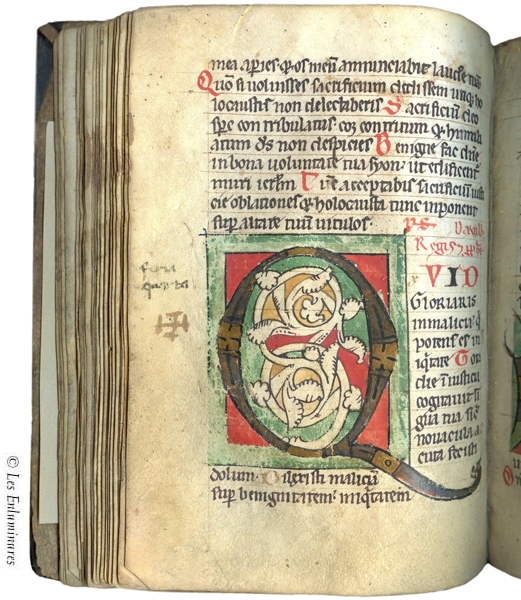 mea ap̄ies· ⁊ os meū annunciabit laudē tuā·
Quo͞n si voluisses sacrificium dedissem utiq; ho
locaustis non delectaberis· Sacrificiū deo
sp̄c contribulatus· cor contritum ⁊ humili
atum d̄s non despicies Benigne fac dn̄e
in bona voluntate tua syon· ut edificent̄
muri ier̄l̄m Tūc acceptabis sacrificiū iusti
cie oblationes ⁊ holocausta tunc inponent
sup̄ altare tuū vitulos·
p̄s·
Regis
QUID
GLORIARIS
in malicia· q̄
potens es in
iq̄tate Tota
die ī iusticiā
cogitavit lī
gua tua sic̄
novacula a
cuta fecisti
dolum· Dilexisti maliciā
sup̄ benignitatem· iniq̄tatem
feria
quarta
© Les Enluminures